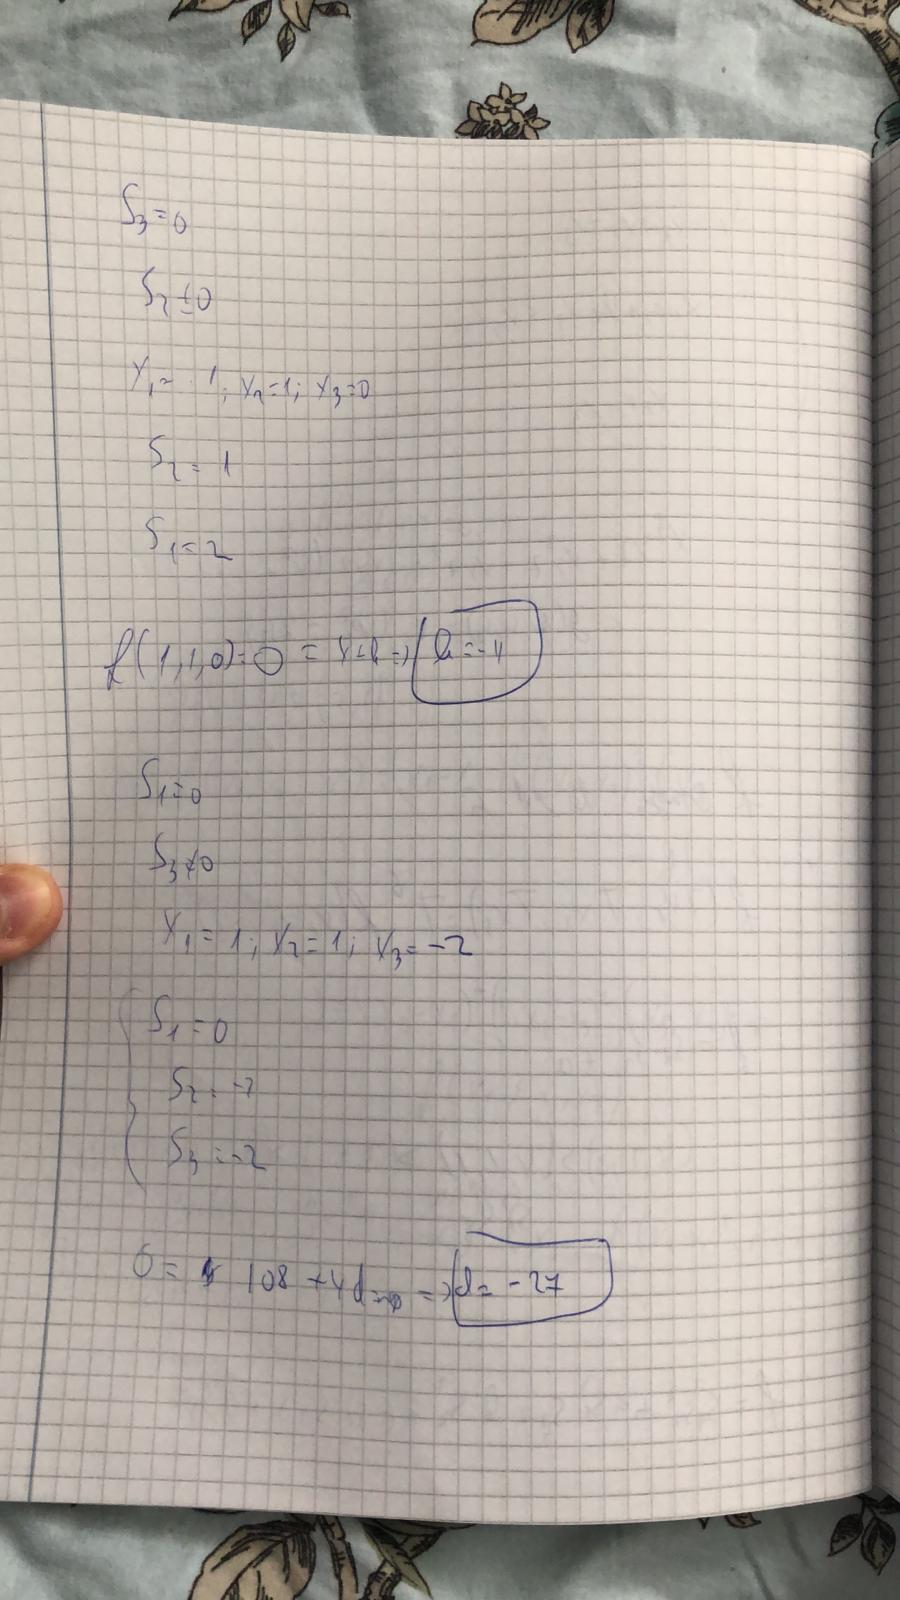 S₃=0
S₂≠0
x₁= 1; x₂=1; x₃=0
S₂= 1
S₁=2
f(1,1,0)=0 = 4+b => b=-4
S₁=0
S₃≠0
x₁=1; x₂=1; x₃=-2
S₁=0
S₂=-3
S₃=-2
0= 108 +4d => d= -27